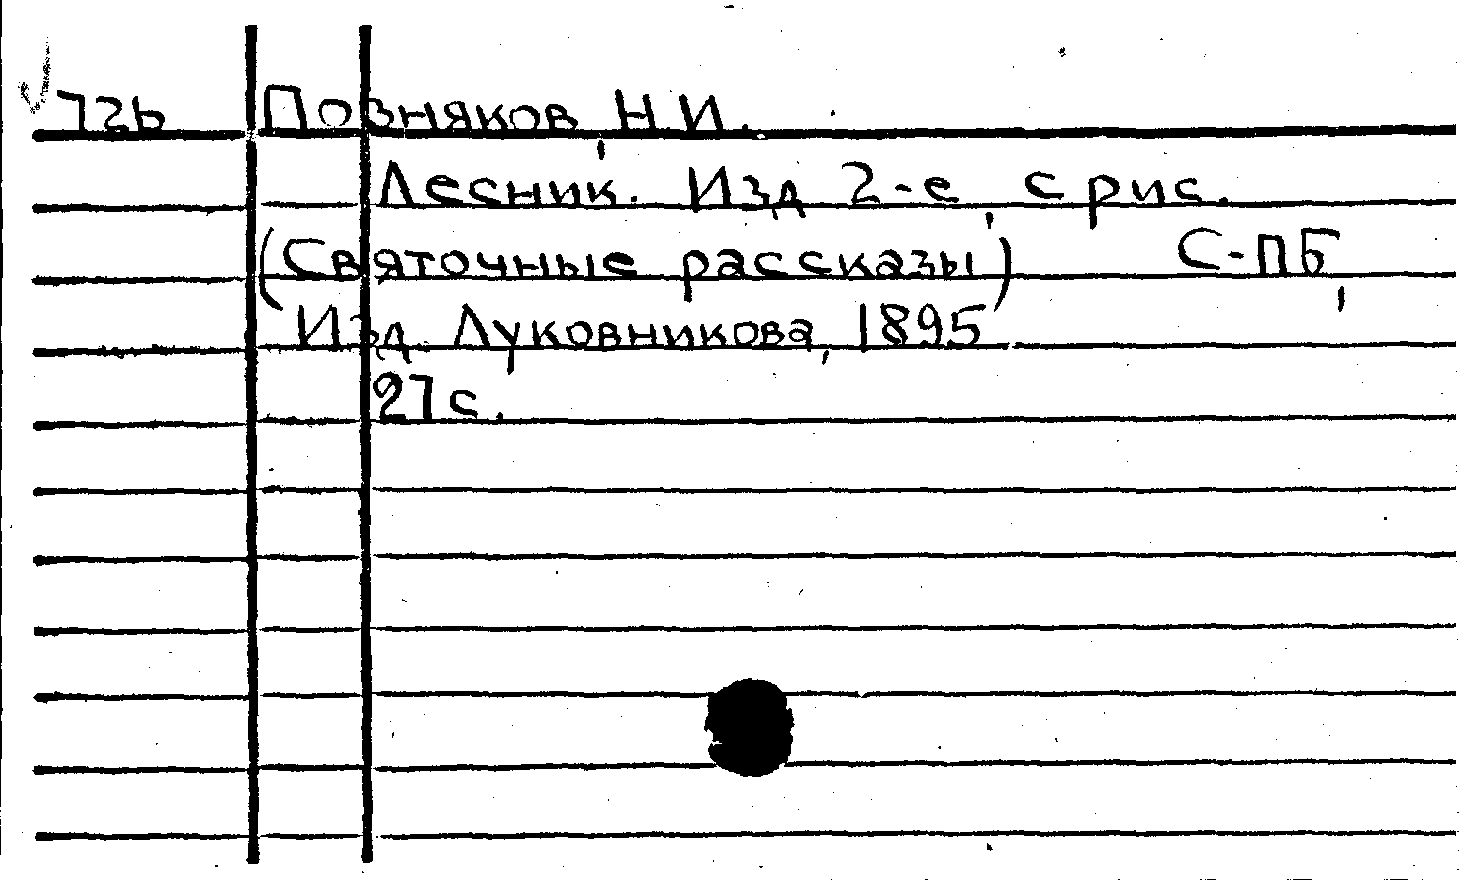 72Ь Позняков, Н.И.
Лесник. Изд 2-е, с рис.
(Святочные рассказы) С-ПБ,
Изд. Луковникова, 1895
27с.